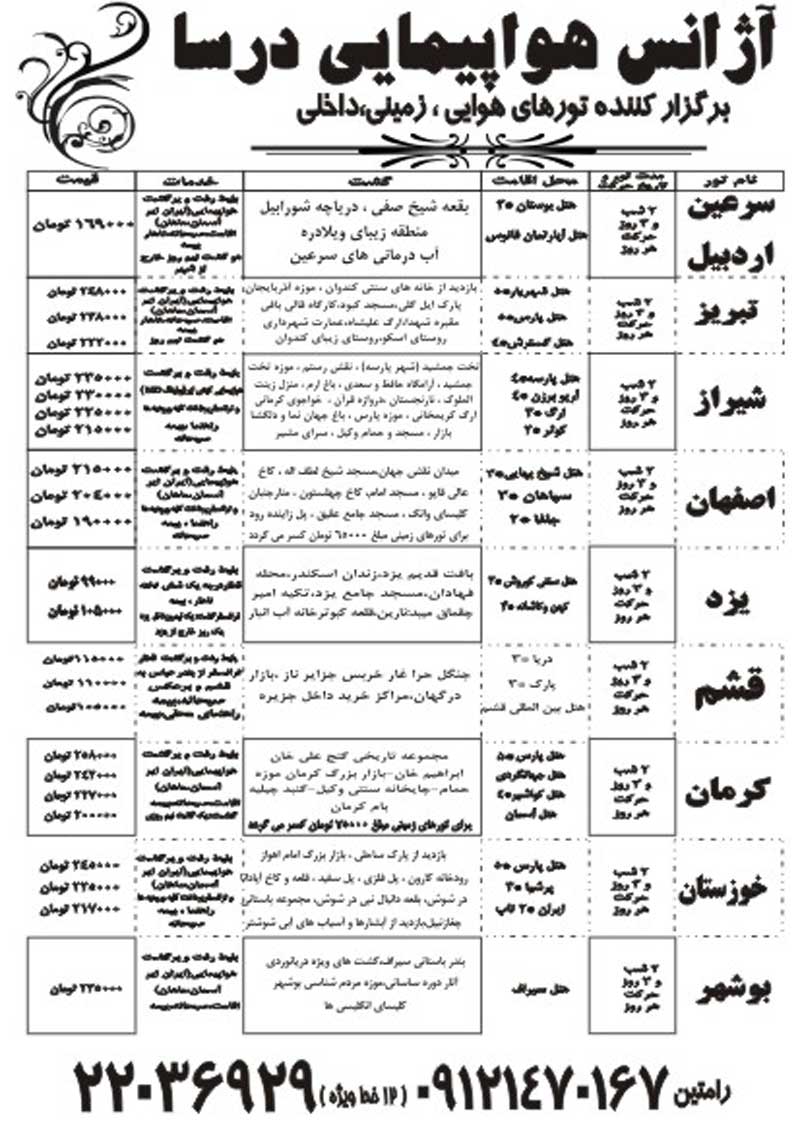 آژانس هواپیمایی درسا
برگزار کننده تورهای هوایی ، زمینی،داخلی
نام تور
مدت تور و تاریخ حرکت
محل اقامت
گشت
خدمات
قیمت
سرعین
اردبیل
۲ شب
و ۳ روز
حرکت
هر روز
هتل بوستان ۳*
هتل آپارتمان فانوس
بقعه شیخ صفی ، دریاچه شورابیل
منطقه زیبای ویلادره
آب درمانی های سرعین
بلیط رفت و برگشت
هواپیمایی(ایران ایر
آسمان،ماهان)
بیمه
۱۶۹۰۰۰ تومان
تبریز
۲ شب
و ۳ روز
حرکت
هر روز
هتل شهریار۵*
هتل پارس۵*
هتل گسترش۴*
بازدید از خانه های سنتی کندوان ، موزه آذربایجان
پارک ایل گلی،مسجد کبود،کارگاه قالی بافی
مقبره شهدا/ارک علیشاه،عمارت شهرداری
روستای اسکو،روستای زیبای کندوان
بلیط رفت و برگشت
هواپیمایی(ایران ایر
آسمان،ماهان)
۲۴۸۰۰۰ تومان
۲۳۸۰۰۰ تومان
۲۲۲۰۰۰ تومان
شیراز
۲ شب
و ۳ روز
حرکت
هر روز
هتل پارسه۴*
آریو برزن ۴*
ارگ ۳*
کوثر ۳*
تخت جمشید (شهر پارسه) ، نقش رستم ، موزه تخت
جمشید ، آرامگاه حافظ و سعدی ، باغ ارم ، منزل زینت
الملوک ، نارنجستان ،دروازه قرآن ، خواجوی کرمانی
ارگ کریمخانی ، موزه پارس ، باغ جهان نما و دلگشا
بازار ، مسجد و حمام وکیل ، سرای مشیر
بلیط رفت و برگشت
راهنما ،بیمه
صبحانه
۲۳۵۰۰۰ تومان
۲۳۰۰۰۰ تومان
۲۲۵۰۰۰ تومان
۲۱۵۰۰۰ تومان
اصفهان
۲ شب
و ۳ روز
حرکت
هر روز
هتل شیخ بهایی۳*
سپاهان ۳*
جلفا ۲*
میدان نقش جهان،مسجد شیخ لطف اله ، کاخ
عالی قاپو ، مسجد امام، کاخ چهلستون ، منارجنبان
کلیسای وانک ، مسجد جامع عقیق ، پل زاینده رود
برای تورهای زمینی مبلغ ۶۵۰۰۰ تومان کسر می گردد
بلیط رفت و برگشت
هواپیمایی(ایران ایر
آسمان،ماهان)
راهنما ، بیمه
صبحانه
۲۱۵۰۰۰ تومان
۲۰۴۰۰۰ تومان
۱۹۰۰۰۰ تومان
یزد
۲ شب
و ۳ روز
حرکت
هر روز
هتل سنتی کوروش ۳*
کهن و کاشانه ۴*
بافت قدیم یزد،زندان اسکندر،محله
فهادان،مسجد جامع یزد،تکیه امیر
چقماق میبد:نارین،قلعه کبوترخانه آب انبار
بلیط رفت و برگشت
۹۹۰۰۰ تومان
۱۰۵۰۰۰ تومان
قشم
۲ شب
و ۳ روز
حرکت
هر روز
دریا ۳*
پارک ۳*
هتل بین المللی قشم
جنگل حرا غار خربس جزایر ناز ،بازار
درگهان،مراکز خرید داخل جزیره
بلیط رفت و برگشت قطار
ترانسفر از بندر عباس به
قشم و برعکس
صبحانه،بیمه
راهنمای محلی،بیمه
۱۱۵۰۰۰تومان
۱۱۰۰۰۰ تومان
۱۰۵۰۰۰ تومان
کرمان
۲ شب
و ۳ روز
حرکت
هر روز
هتل پارس ۵*
هتل جهانگردی
هتل گواشیر۴*
هتل آسمان
مجموعه تاریخی گنج علی خان
ابراهیم خان-بازار بزرگ کرمان موزه
حمام-چایخانه سنتی وکیل-گنبد جبلیه
بام کرمان
برای تورهای زمینی مبلغ ۷۵۰۰۰ تومان کسر می گردد
بلیط رفت و برگشت
هواپیمایی(ایران ایر
آسمان،ماهان)
۲۵۸۰۰۰ تومان
۲۴۲۰۰۰ تومان
۲۲۷۰۰۰ تومان
۲۰۰۰۰۰ تومان
خوزستان
۲ شب
و ۳ روز
حرکت
هر روز
هتل پارس ۵*
پرشیا ۳*
ایران ۳* تاپ
بازدید از پارک ساحلی ، بازار بزرگ امام اهواز
رودخانه کارون ، پل فلزی ، پل سفید ، قلعه و کاخ آپادانا
در شوش، بلعه دانیال نبی در شوش، مجموعه باستانی
چغازنبیل،بازدید از آبشارها و آسیاب های آبی شوشتر
بلیط رفت و برگشت
هواپیمایی(ایران ایر
آسمان،ماهان)
راهنما ، بیمه
صبحانه
۲۴۵۰۰۰ تومان
۲۲۵۰۰۰ تومان
۲۱۷۰۰۰ تومان
بوشهر
۲ شب
و ۳ روز
حرکت
هر روز
هتل سیراف
بندر باستانی سیراف،گشت های ویژه دریانوردی
آثار دوره ساسانی،موزه مردم شناسی بوشهر
کلیسای انگلیسی ها
بلیط رفت و برگشت
هواپیمایی(ایران ایر
آسمان،ماهان)
اقامت،صبحانه،بیمه
۲۳۵۰۰۰ تومان
رامتین ۰۹۱۲۱۴۷۰۱۶۷ (۱۲ خط ویژه) ۲۲۰۳۶۹۲۹